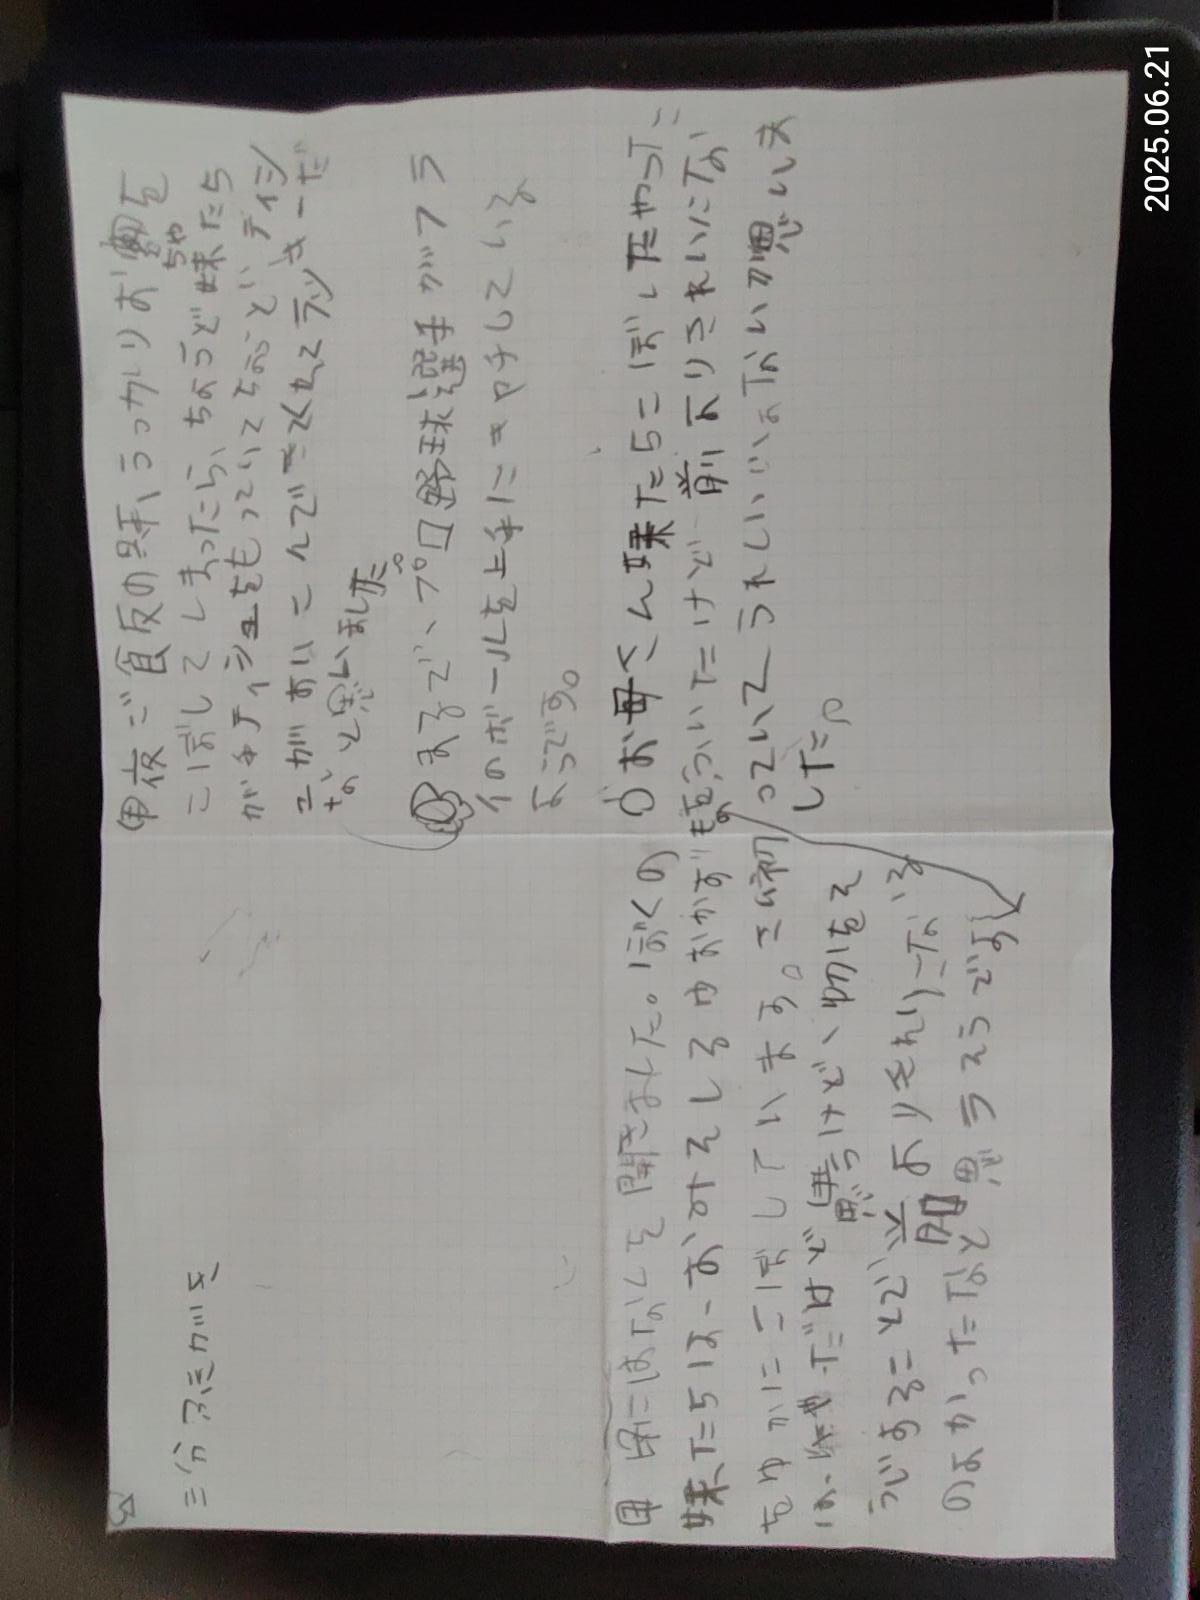 三分ふきがき
甲 夜ご飯の時、うっかりお茶を
ちゃ
こぼしてしまったら、ちょうど妹たち
がティシュをもっててちょうどティシ
ュがあいこんできてくれてラッキーだ
なと思いました。
まるで、プロ野球選手がフラ
イのボールを上手にキャチしている
ようです。
妹にはなしを聞きました。ぼくの
妹たちは、おみそしるやおかずを
ゆかにこぼしています。さい初
は、いやだけど思うけど、切りを
うじすることで前よりきれいになる
のよかったなと思うそうです
お母さん妹たちこぼしたやつこ
をふいたけど前よりきれいにな
っていてうれしいじょないか思いま
した。
2025.06.21